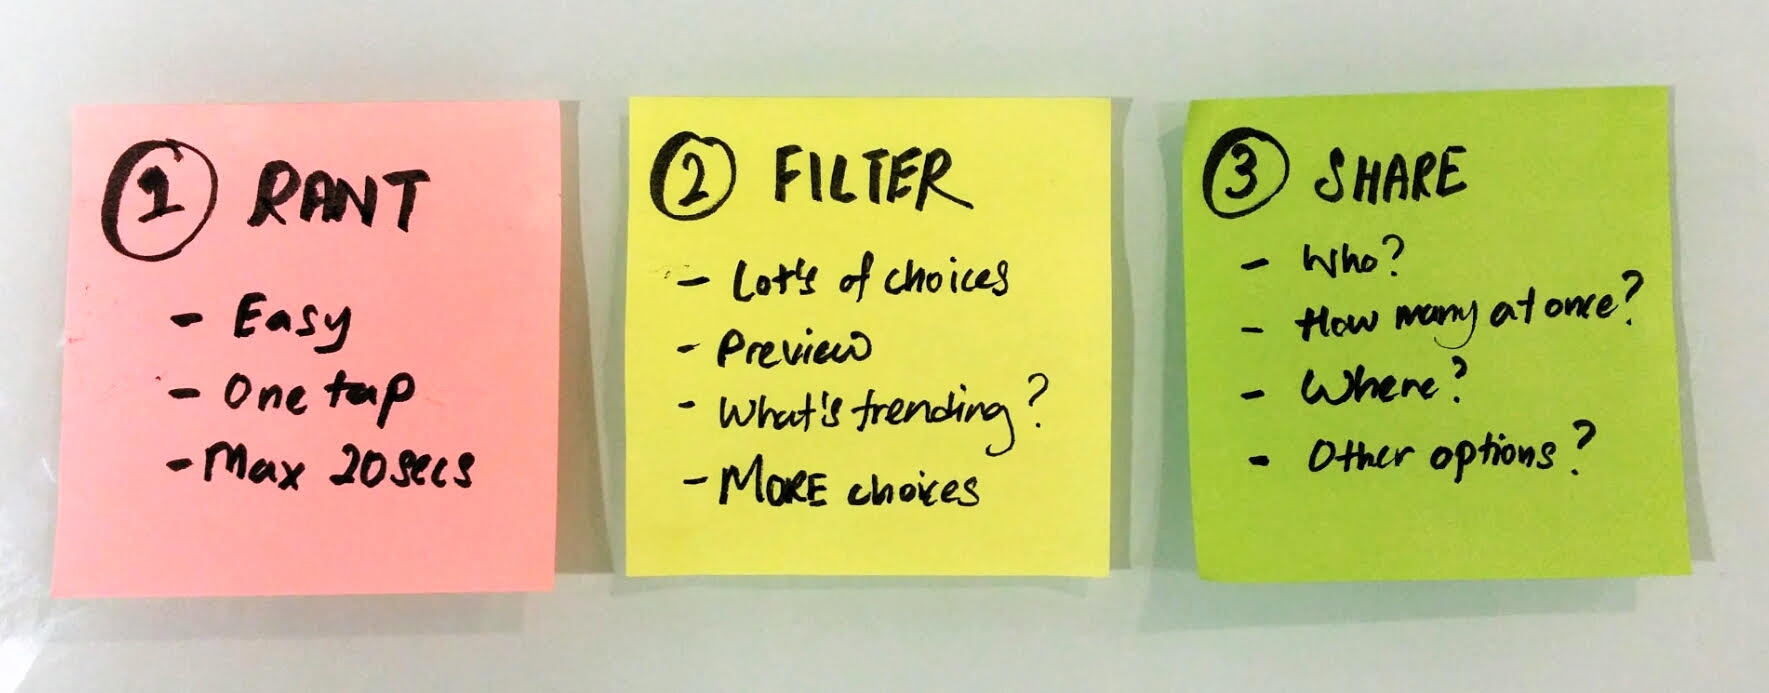 1 RANT
- Easy
- One tap
- Max 20secs
2 FILTER
- Lot's of choices
- Preview
- What's trending?
- MORE choices
3 SHARE
- Who?
- How many at once?
- Where?
- Other options?